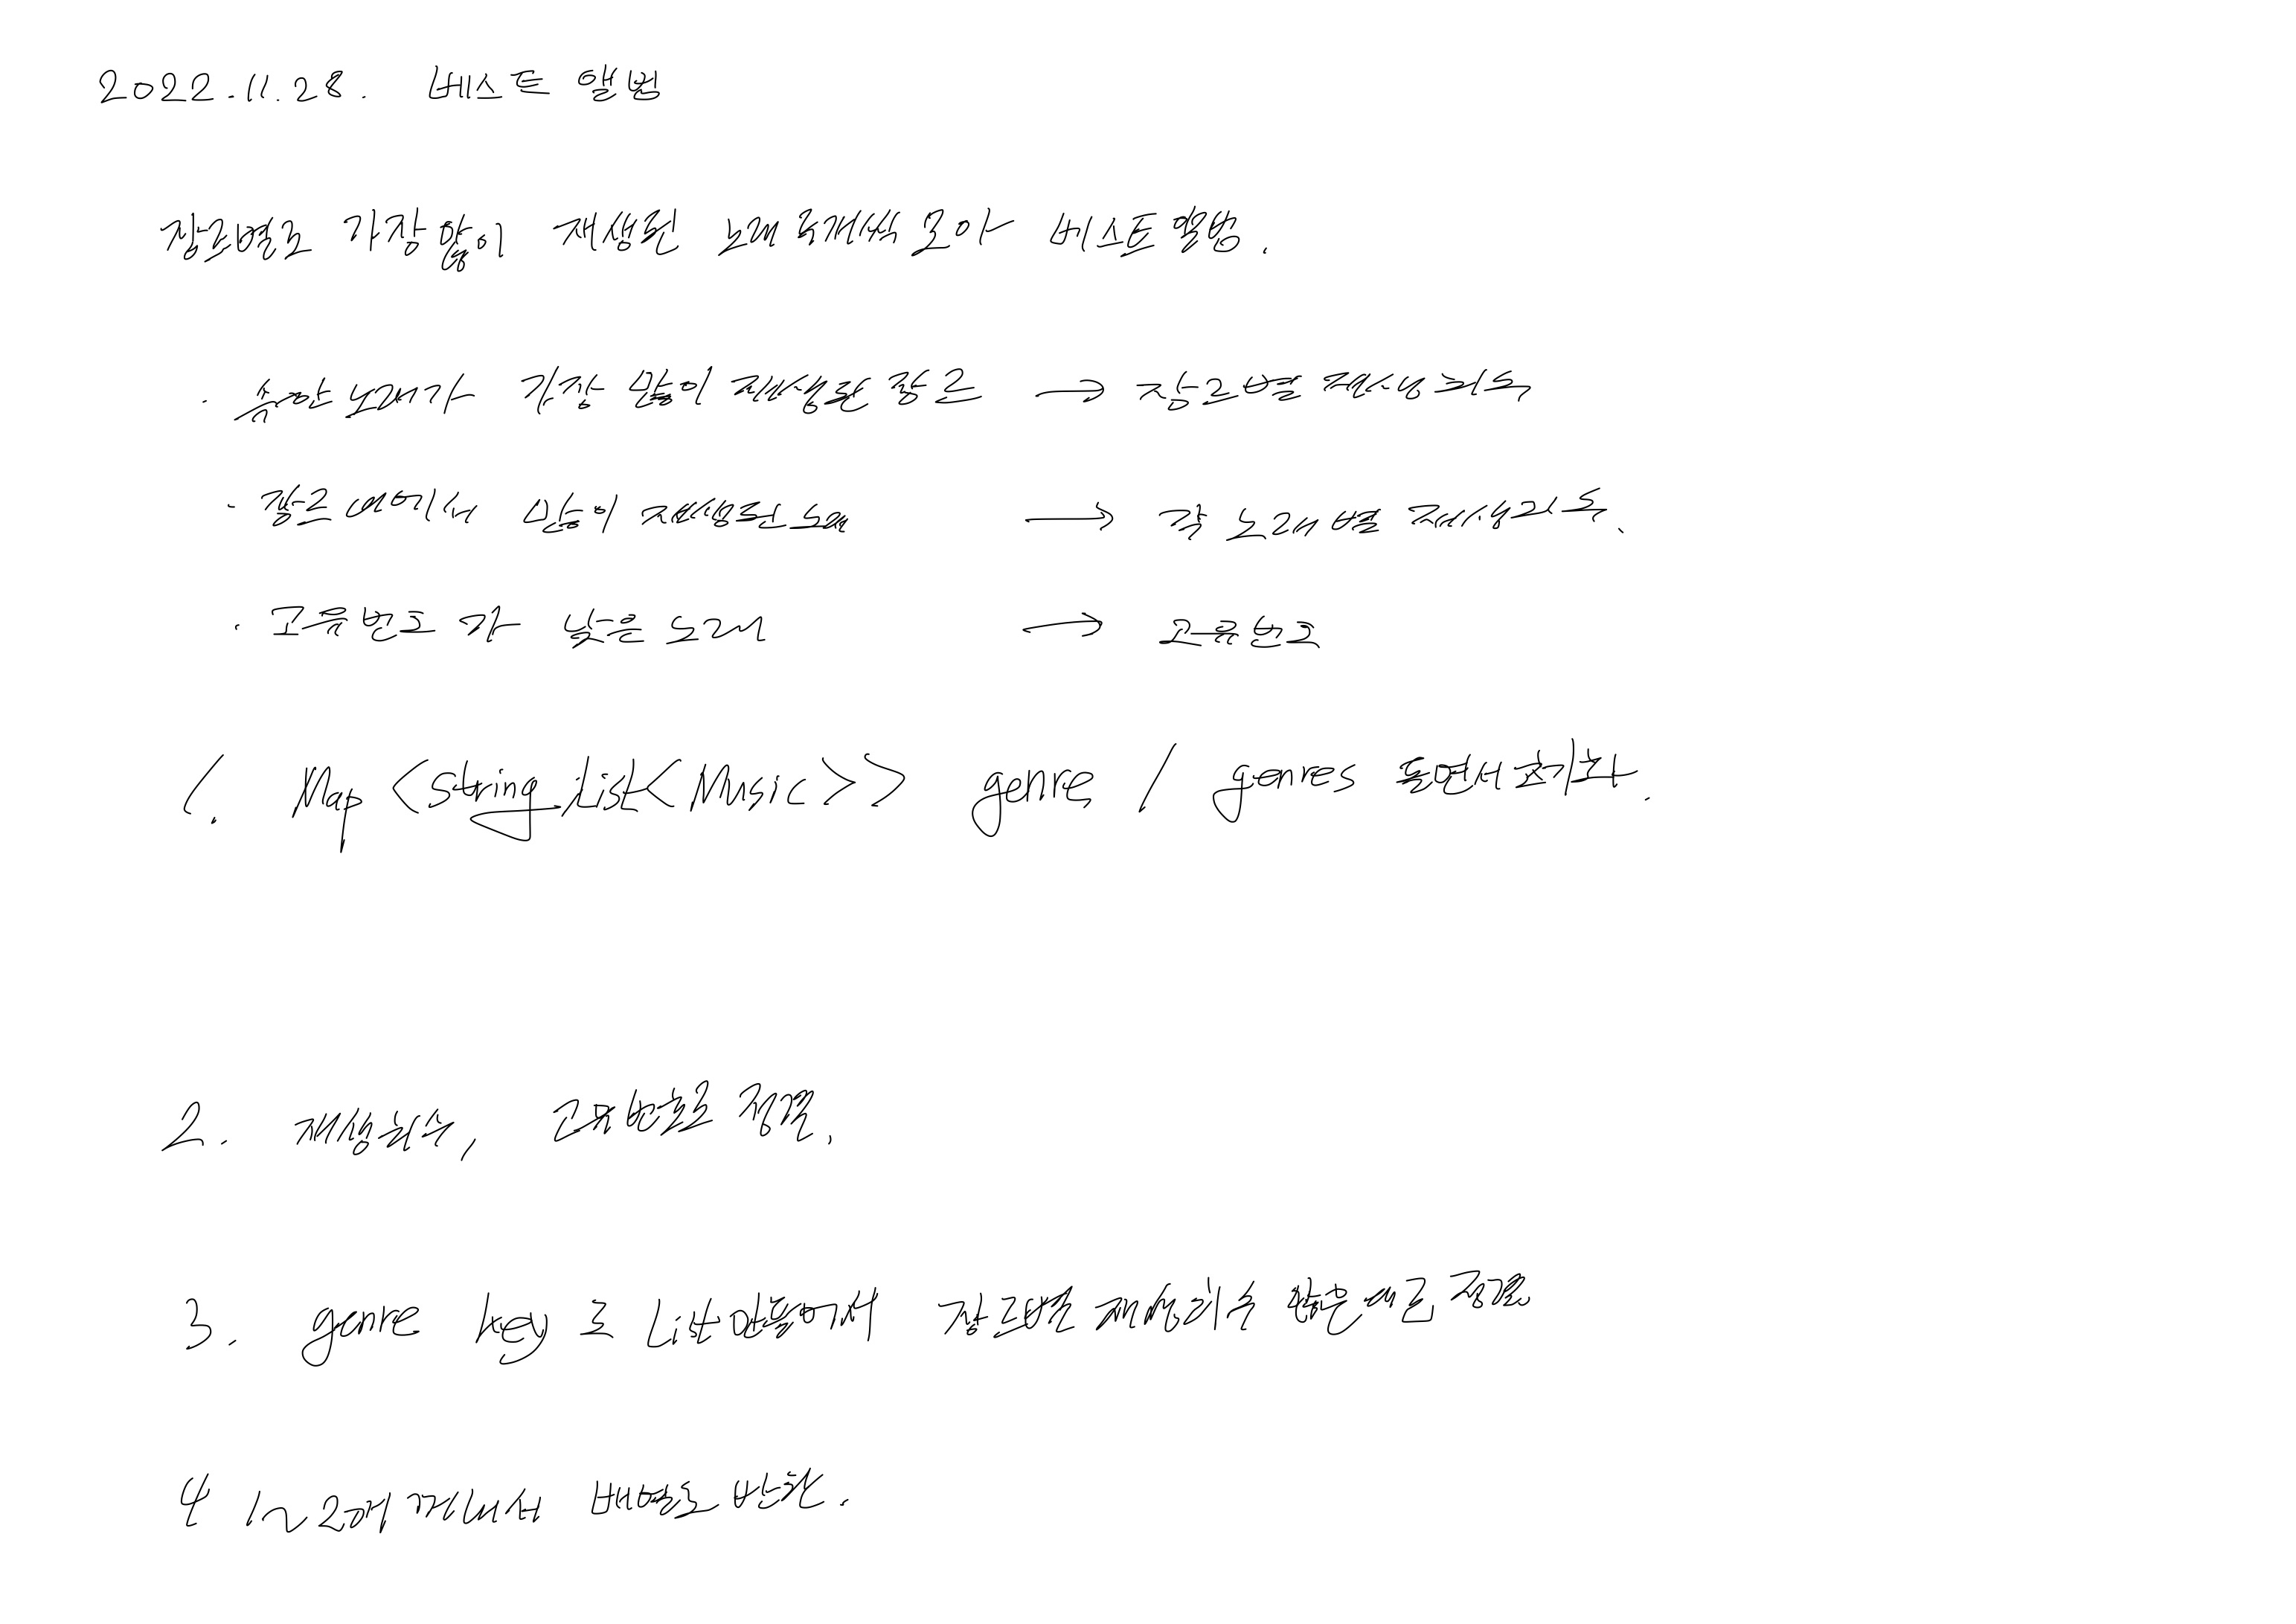 2022.11.28. 베스트 앨범
장르별로 가장 많이 재생된 노래 두개씩 모아 베스트앨범.
· 속한 노래가 가장 많이 재생된 장르 → 장르별 재생 회수
· 장르 내에서 많이 재생된 노래 → 각 노래별 재생회수.
· 고유번호가 낮은 노래 → 고유번호
1. Map <String, List<Music>> genre / genres 돌면서 초기화.
2. 재생회수, 고유번호로 정렬.
3. genre key로 List 만들어서 장르별 재생회수 많은대로 정렬
4 1~2개 꺼내서 배열로 반환.